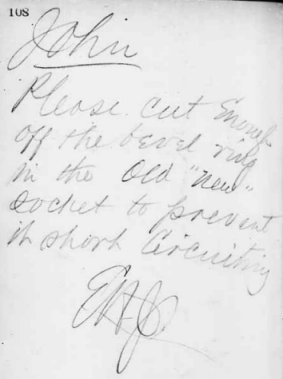 108
John
Please cut Enough
off the bevel ring
in the Old "new"
Socket to prevent
it short Circuiting
EHJ